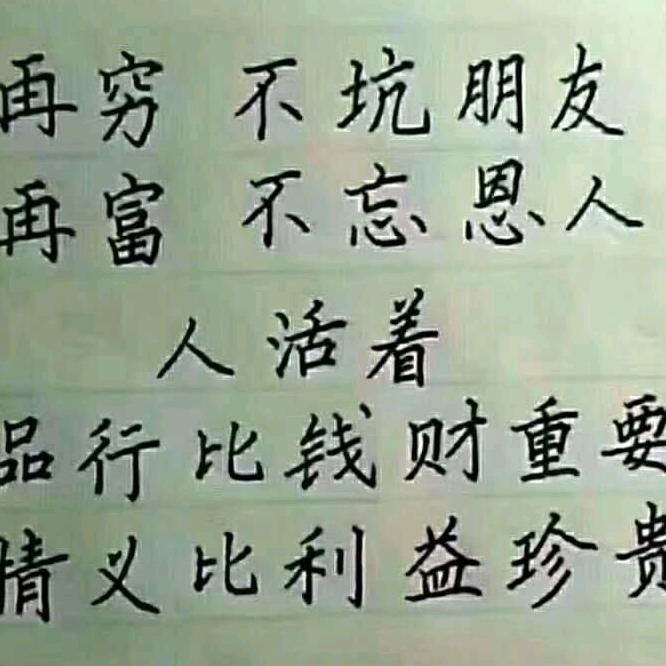 再穷 不坑朋友
再富 不忘恩人
人活着
品行比钱财重要
情义比利益珍贵